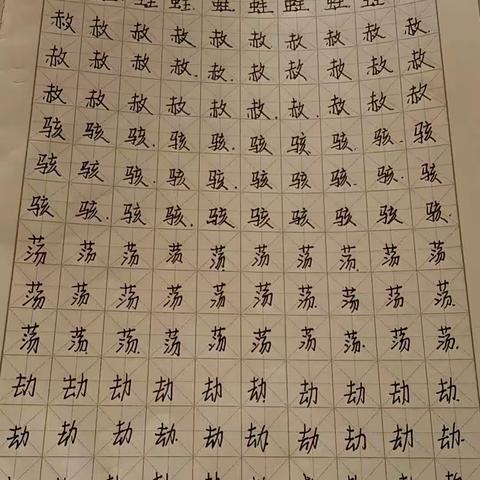 蛙蛙蛙蛙蛙蛙蛙
赦赦赦赦赦赦赦赦赦赦
赦赦赦赦赦赦赦赦赦赦
赦赦赦赦赦赦赦赦赦赦
骇骇骇骇骇骇骇骇骇骇
骇骇骇骇骇骇骇骇骇骇
骇骇骇骇骇骇骇骇骇骇
荡荡荡荡荡荡荡荡荡荡
荡荡荡荡荡荡荡荡荡荡
荡荡荡荡荡荡荡荡荡荡
劫劫劫劫劫劫劫劫劫劫
劫劫劫劫劫劫劫劫劫劫